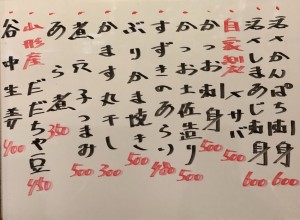 活〆かんぱち刺身 600
活〆しまあじ刺身 600
自家製〆サバ 500
かつお刺身 500
かつお土佐造り 500
すずきのあらい 480
ぶりかま焼き 500
かます丸干し 300
煮穴子つまみ 500
あら煮 380
山形産だだちゃ豆 480
谷中生姜 400